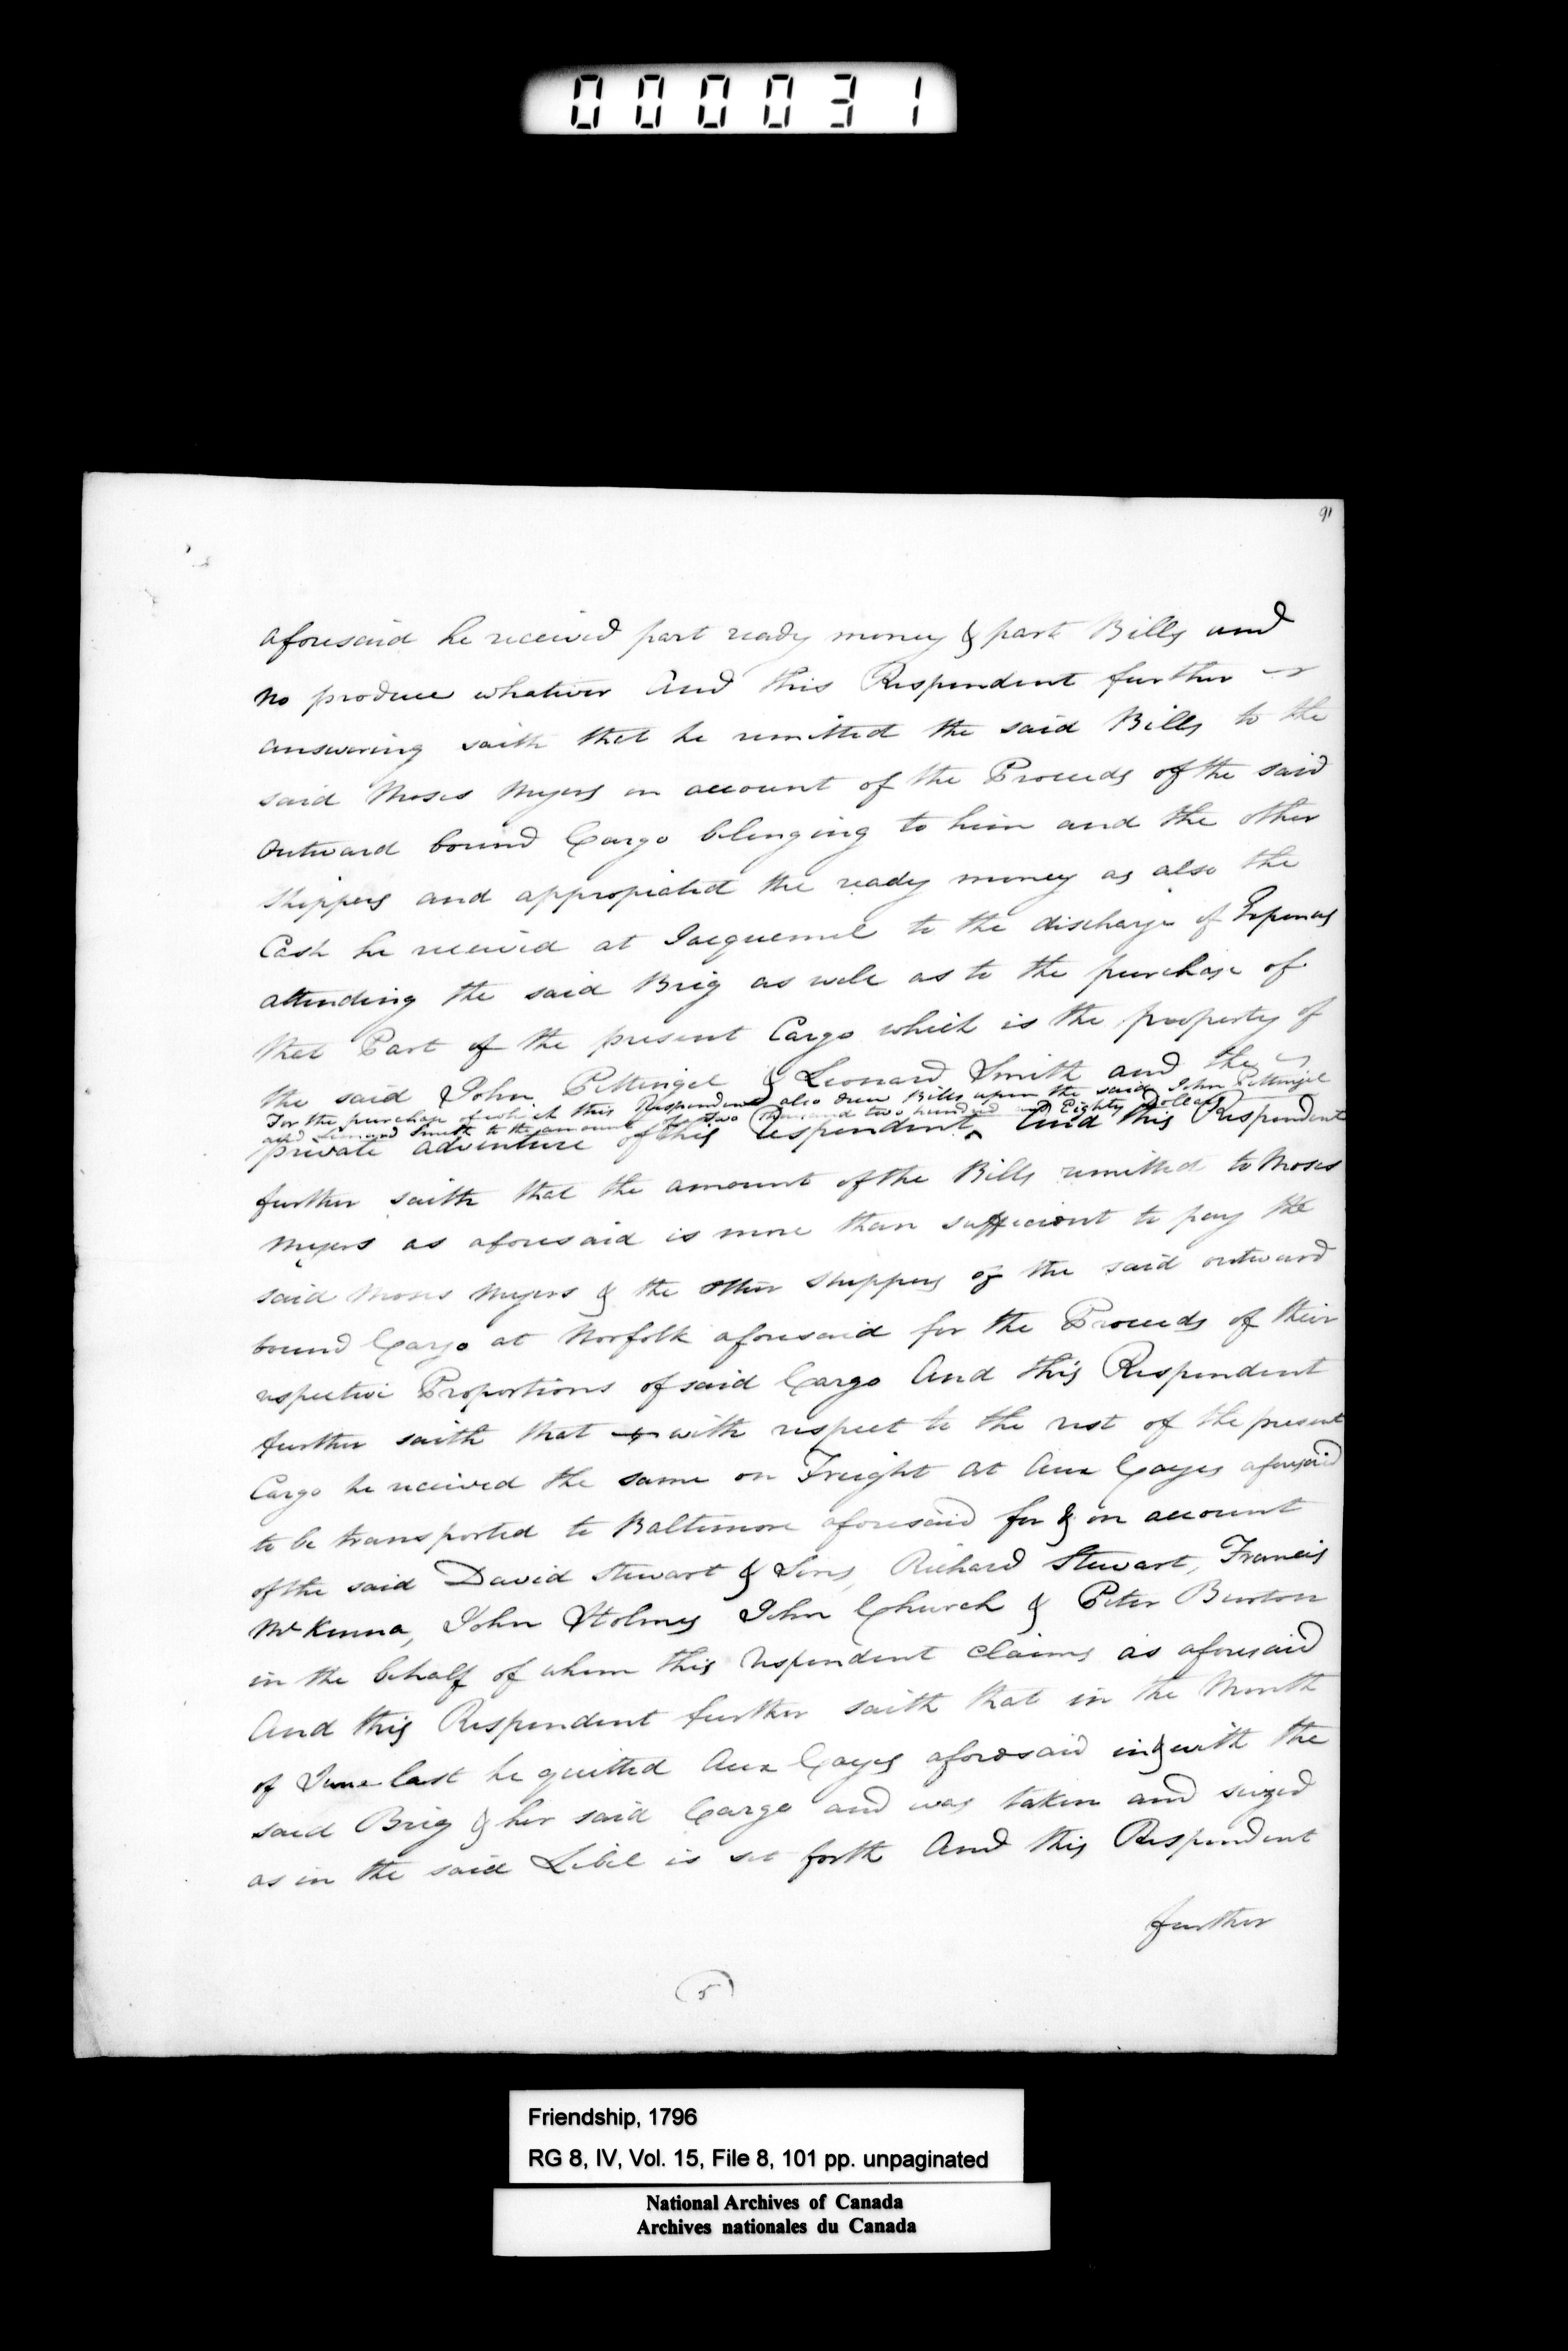 000031
91
aforesaid he received part ready money & part Bills and
no produce whatever And this Respondent further
answering saith that he remitted the said Bills to the
said Moses Myers on account of the Proceeds of the said
outward bound Cargo belonging to him and the other
Shippers and appropiated the ready money as also the
Cash he received at Jacquemel to the discharge of Expences
attending the said Brig as well as to the purchase of
that Part of the present Cargo which is the property of
the said John Pettingel & Leonard Smith and the
For the purchase of which this Respondent also drew Bills upon the said John Pettingel
and Leonard Smith to the amount of Two Thousand two hundred and Eighty Dollars
private adventure of this respondent‸ And this Respondent
further saith that the amount of the Bills remitted to Moses
Myers as aforesaid is more than sufficient to pay the
said Moses Myers & the other Shippers of the said outward
bound Cargo at Norfolk aforesaid for the Proceeds of their
respective Proportions of said Cargo And this Respondent
further saith that with respect to the rest of the present
Cargo he received the same on Freight at Aux Cayes aforesaid
to be transported to Baltimore aforesaid for & on account
of the said David Stewart & Sons, Richard Stewart, Francis
McKenna, John Holmes John Church & Peter Burton
in the behalf of whom this respondent claims as aforesaid
And this Respondent further saith that in the Month
of June last he quitted Aux Cayes aforesaid in & with the
said Brig & her said Cargo and was taken and seized
as in the said Libel is set forth And this Respondent
further
(5)
Friendship, 1796
RG 8, IV, Vol. 15, File 8, 101 pp. unpaginated
National Archives of Canada
Archives nationales du Canada